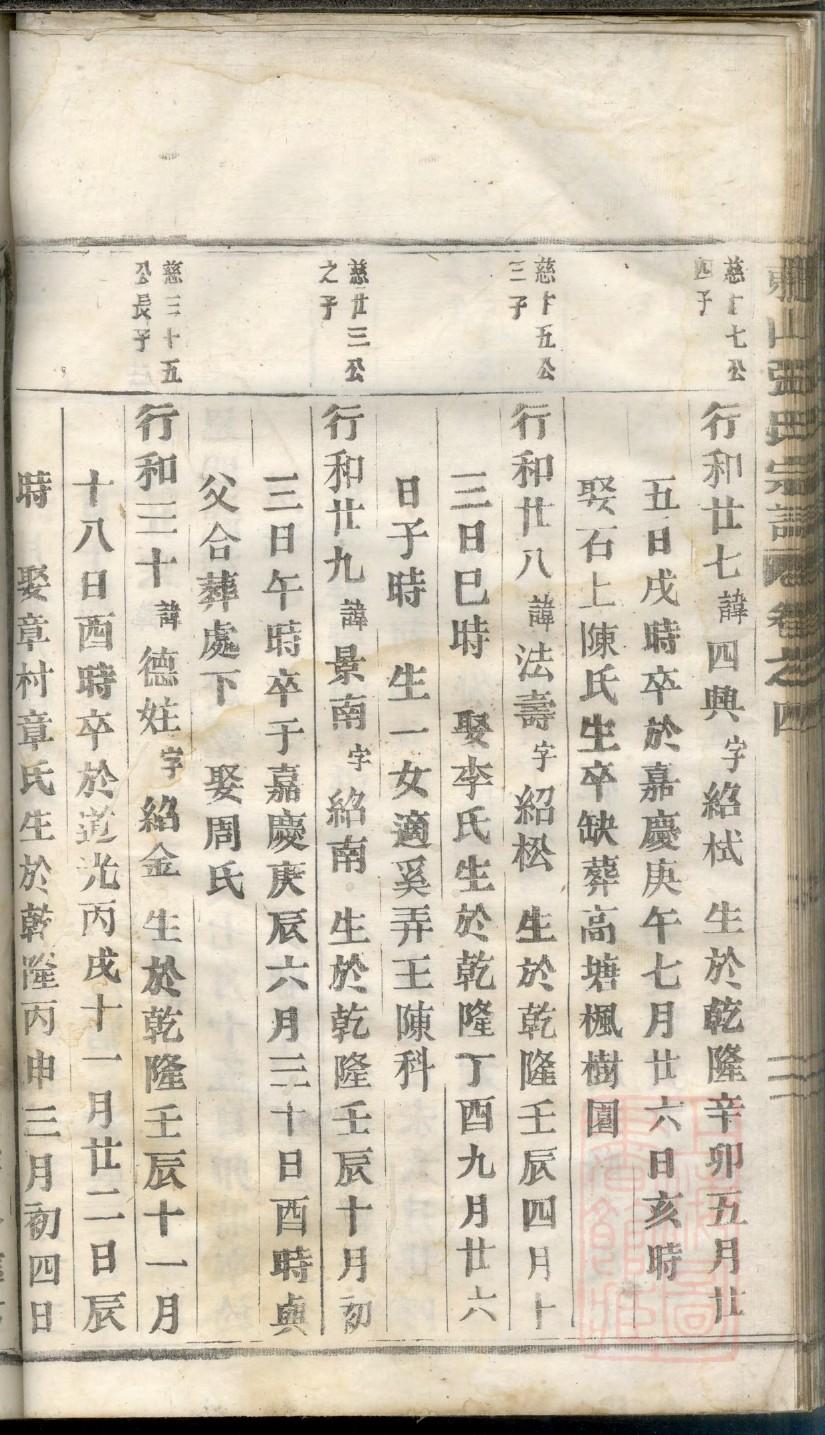 山張氏宗譜 卷之四
二
慈十七公
四子
行和廿七諱四興字紹栻 生於乾隆辛卯五月廿
五日戌時卒於嘉慶庚午七月廿六日亥時
娶石上陳氏生卒缺葬高塘楓樹園
慈十五公
三子
行和廿八諱法壽字紹松 生於乾隆壬辰四月十
三日巳時 娶李氏生於乾隆丁酉九月廿六
日子時 生一女適奚弄王陳科
慈廿三公
之子
行和廿九諱景南字紹南 生於乾隆壬辰十月初
三日午時卒于嘉慶庚辰六月三十日酉時與
父合葬處下 娶周氏
慈三十五
公長子
行和三十諱德妵字紹金 生於乾隆壬辰十一月
十八日酉時卒於道光丙戌十一月廿二日辰
時 娶章村章氏生於乾隆丙申三月初四日